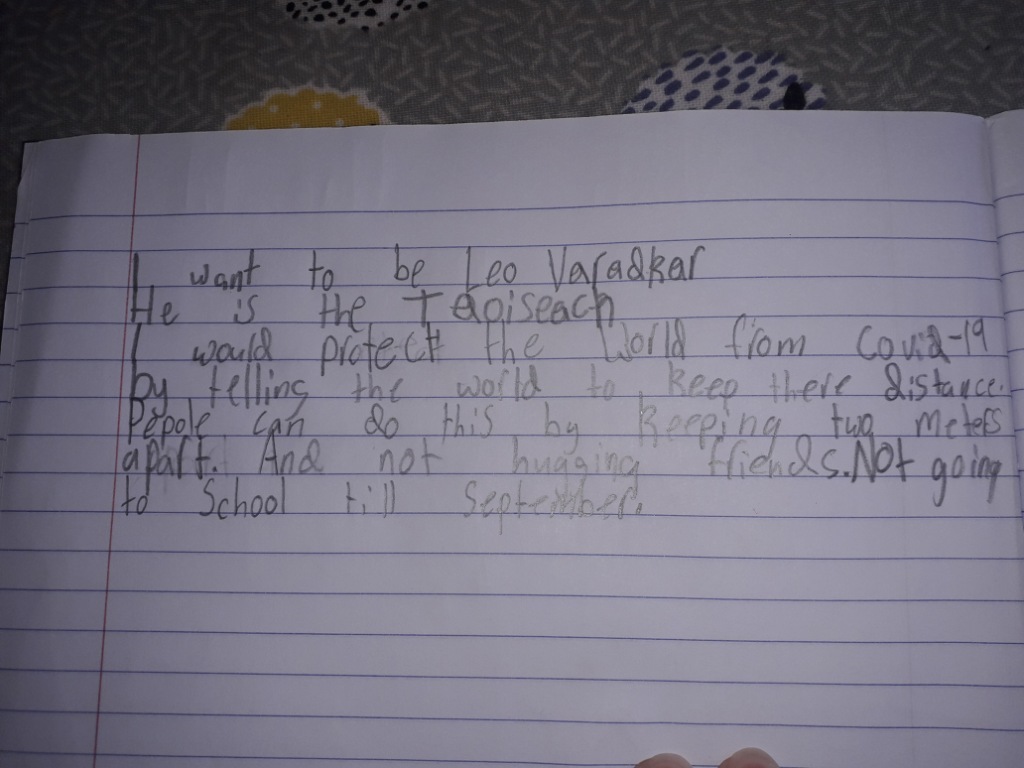 I want to be Leo Varadkar
He is the Taoiseach
I would protect the World from Covid-19
by telling the world to keep there distance.
Pepole can do this by keeping two meters
apart. And not hugging friends. Not going
to School till September.